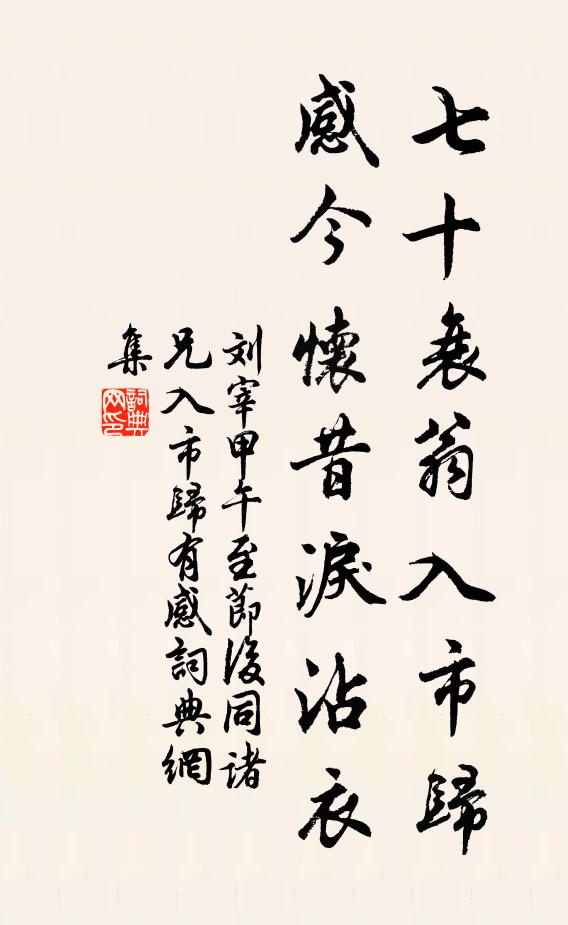 七十衰翁入市歸
感今懷昔淚沾衣
刘宰甲午至節後同諸
兄入市歸有感詞典網
集
詞典網印